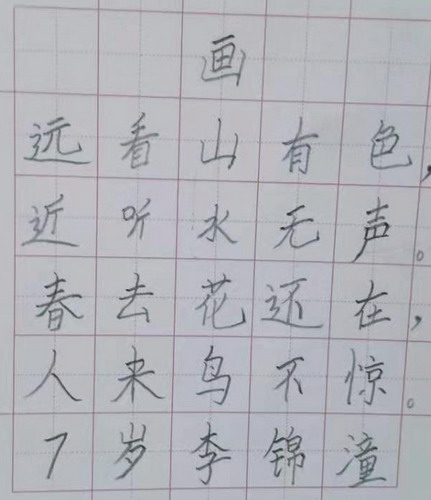 画
远看山有色,
近听水无声。
春去花还在,
人来鸟不惊。
7岁李锦潼